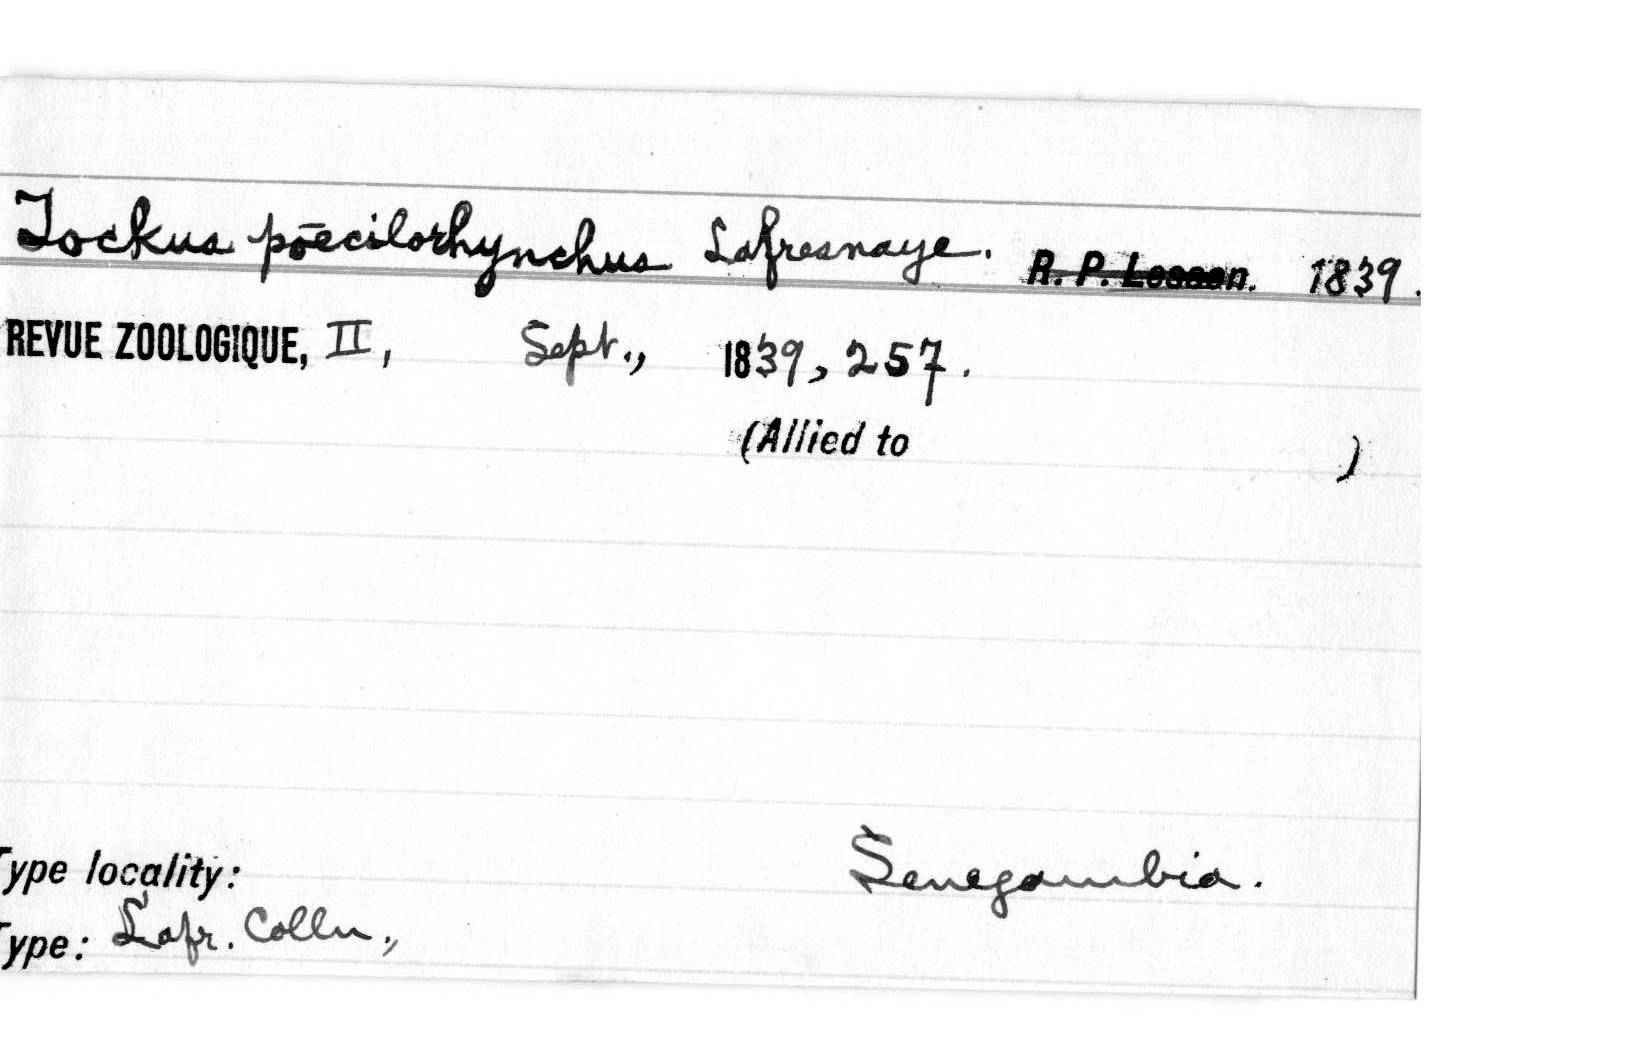 Tockus pōecilorhynchus Lafresnaye. R. P. Lesson. 1839.
REVUE ZOOLOGIQUE, II, Sept., 1839, 257.
(Allied to )
Type locality: Senegambia.
Type: Lafr. Colln.,